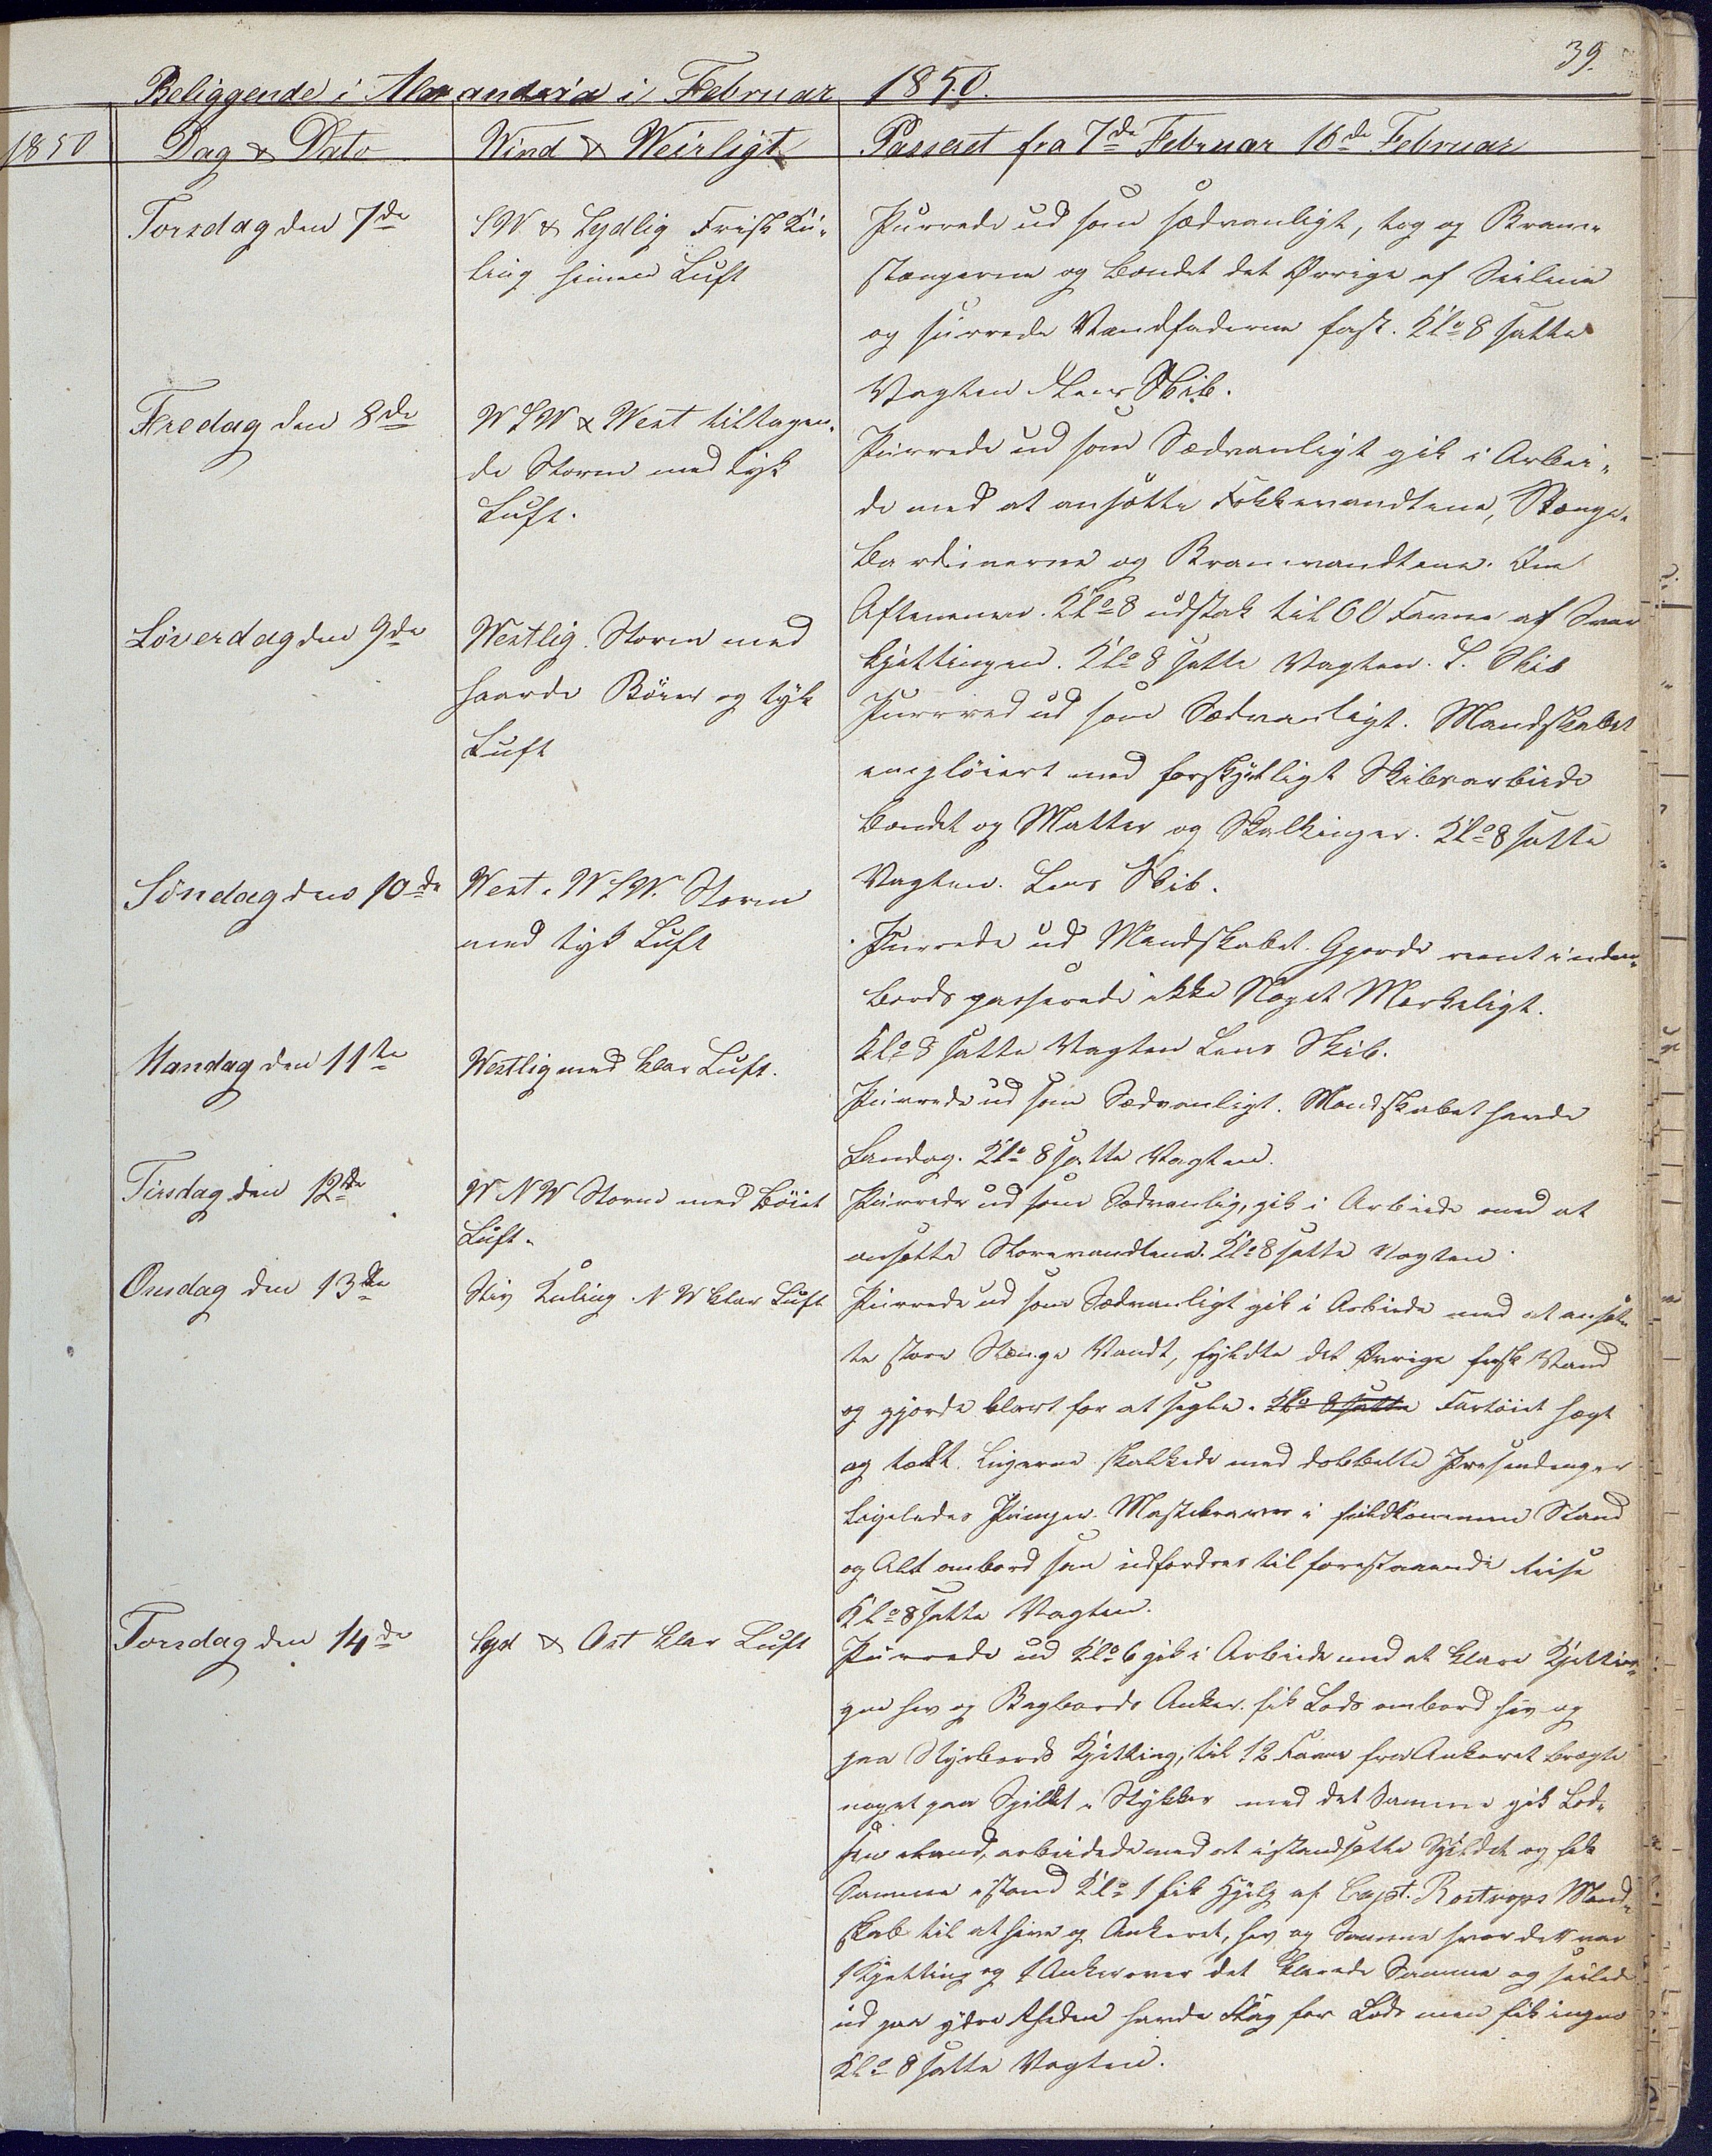 39.
Beliggende i Alexandria i Februar 1850.
1850 Dag & Dato Wind & Weirligt Passeret fra 7de Februar 16de Februar
Torsdag den 7de
SW & Sydlig Frisk Ku-
ling Luft
Purrede ud som sædvanligt, tog op Bram-
stængerne og bændt det Øvrige af Seilene
og surrede Vandfaderne fast. Klo 8 satte
Vagten Lens Skib.
Fredag den 8de
WSW & West tiltagen-
de Storm med tyk
Luft.
Purrede ud som Sædvanligt gik i Arbei-
de med at ansætte Fokkevandtene, Stænge-
bardunerne og Bramvandtene. Om
Aftenen. Klo 8 udstak til 60 Favne af Svær
Kjettingen. Klo 8 satte Vagten. L. Skib
Løverdag den 9de
Westlig. Storm med
haarde Böier og tyk
Luft
Purrred ud som Sædvanligt. Mandskabet
emploiert med forskjeligt Skibsarbeide
bændt og Matter og Skalkinger. Klo 8 satte
Vagten. Lens Skib.
Söndag den 10de
West. WSW. Storm
med tyk Luft
Purrede ud Mandskabet. Gjorde reent inden-
bords passerede ikke Noget Mærkeligt.
Klo 8 satte Vagten Lens Skib.
Mandag den 11te
Westlig med klar Luft.
Purrede ud som Sædvanligt. Mandskabet havde
Landag. Klo 8 satte Vagten.
Tirsdag den 12te
WNW Storm med böiet
Luft.
Purrede ud som Sædvanlig, gik i Arbeide med at
ansætte Storevandtene. Klo 8 satte Vagten.
Onsdag den 13de
Stiv Kuling NW klar Luft
Purrede ud som Sædvanligt gik i Arbeide med at ansæt-
te store Stænge Vandt, fyldte det Øvrige fersk Vand
og gjorde klart for at segle. Klo 8 satte Fartöiet tægt
og tæt. Lugerne skalkede med dobbelte Presendenger
Ligeledes Pumper. Mastekraver i fuldkommen Stand
og Alt ombord som udfordres til forestaaende Reise
Klo 8 satte Vagten.
Torsdag den 14de
Syd & Ost klar Luft
Purrede ud Klo 6 gik i Arbeide med at klare Kjettin-
gen hev op Bagbords Anker. fik Lods ombord hev op
paa Styrbords Kjetting, til 12 Favne fra Ankeret brægte
noget paa Spillet i Stykker med det Samme gik Lod-
sen iland, arbeidede med at istandsætte Spillet og fik
Samme istand Klo 1 fik Hjelp af Capt. Rostrops Mand-
skab til at hive op Ankeret, hev op Samme hvor der var
1 Kjetting og 1 Anker over det klarede Samme og seilede
ud paa ydre Rheden havde Flag for Lods men fik ingen
Klo 8 satte Vagten.